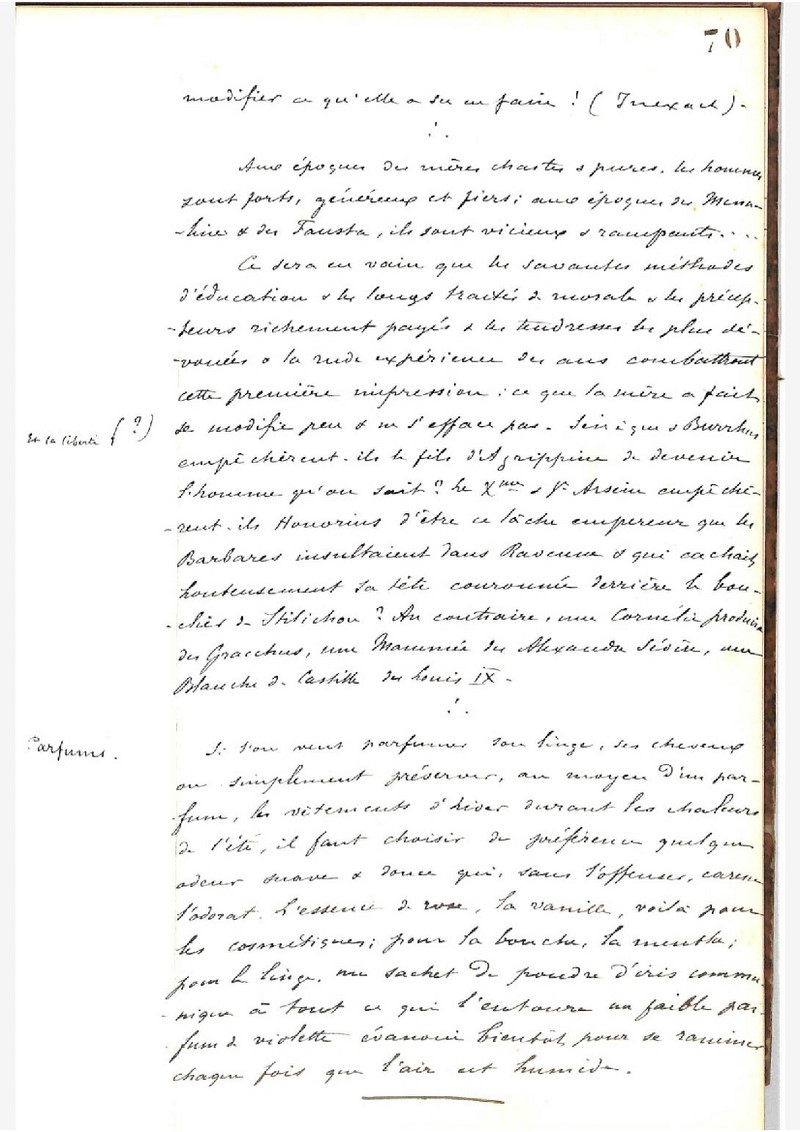 70
modifier ce qu'elle a su en faire ! (Inexact).-
Aux époques des mères chastes & pures, les hommes
sont forts, généreux et fiers ; aux époques des Messa-
-line & des Fausta, ils sont vicieux & rampants....
Ce sera en vain que les savantes méthodes
d'éducation & les longs traités de morale & les précep-
-teurs richement payés & les tendresses les plus dé-
-vouées & la rude expérience des ans combattront
cette première impression : ce que la mère a fait
Et la liberté (?)
se modifie peu & ne s'efface pas. Sénèque & Burrhus
empêchèrent-ils le fils d'Agrippine de devenir
l'homme qu'on sait ? Le Xme & St Arsène empêchè-
-rent-ils Honorius d'être ce lâche empereur que les
Barbares insultaient dans Ravenne & qui cachait
honteusement sa tête couronnée derrière le bou-
-clier de Stilichon ? Au contraire, une Cornélie produira
des Gracchus, une Mammée des Alexandre Sévère, une
Blanche de Castille des Louis IX -
Parfums.
Si l'on veut parfumer son linge, ses cheveux
ou simplement préserver, au moyen d'un par-
-fum, les vêtements d'hiver durant les chaleurs
de l'été, il faut choisir de préférence quelque
odeur suave & douce qui, sans l'offenser, caresse
l'odorat. L'essence de rose, la vanille, voilà pour
les cosmétiques ; pour la bouche, la menthe ;
pour le linge, un sachet de poudre d'iris commu-
-nique à tout ce qui l'entoure un faible par-
-fum de violette évanoui bientôt pour se ranimer
chaque fois que l'air est humide.